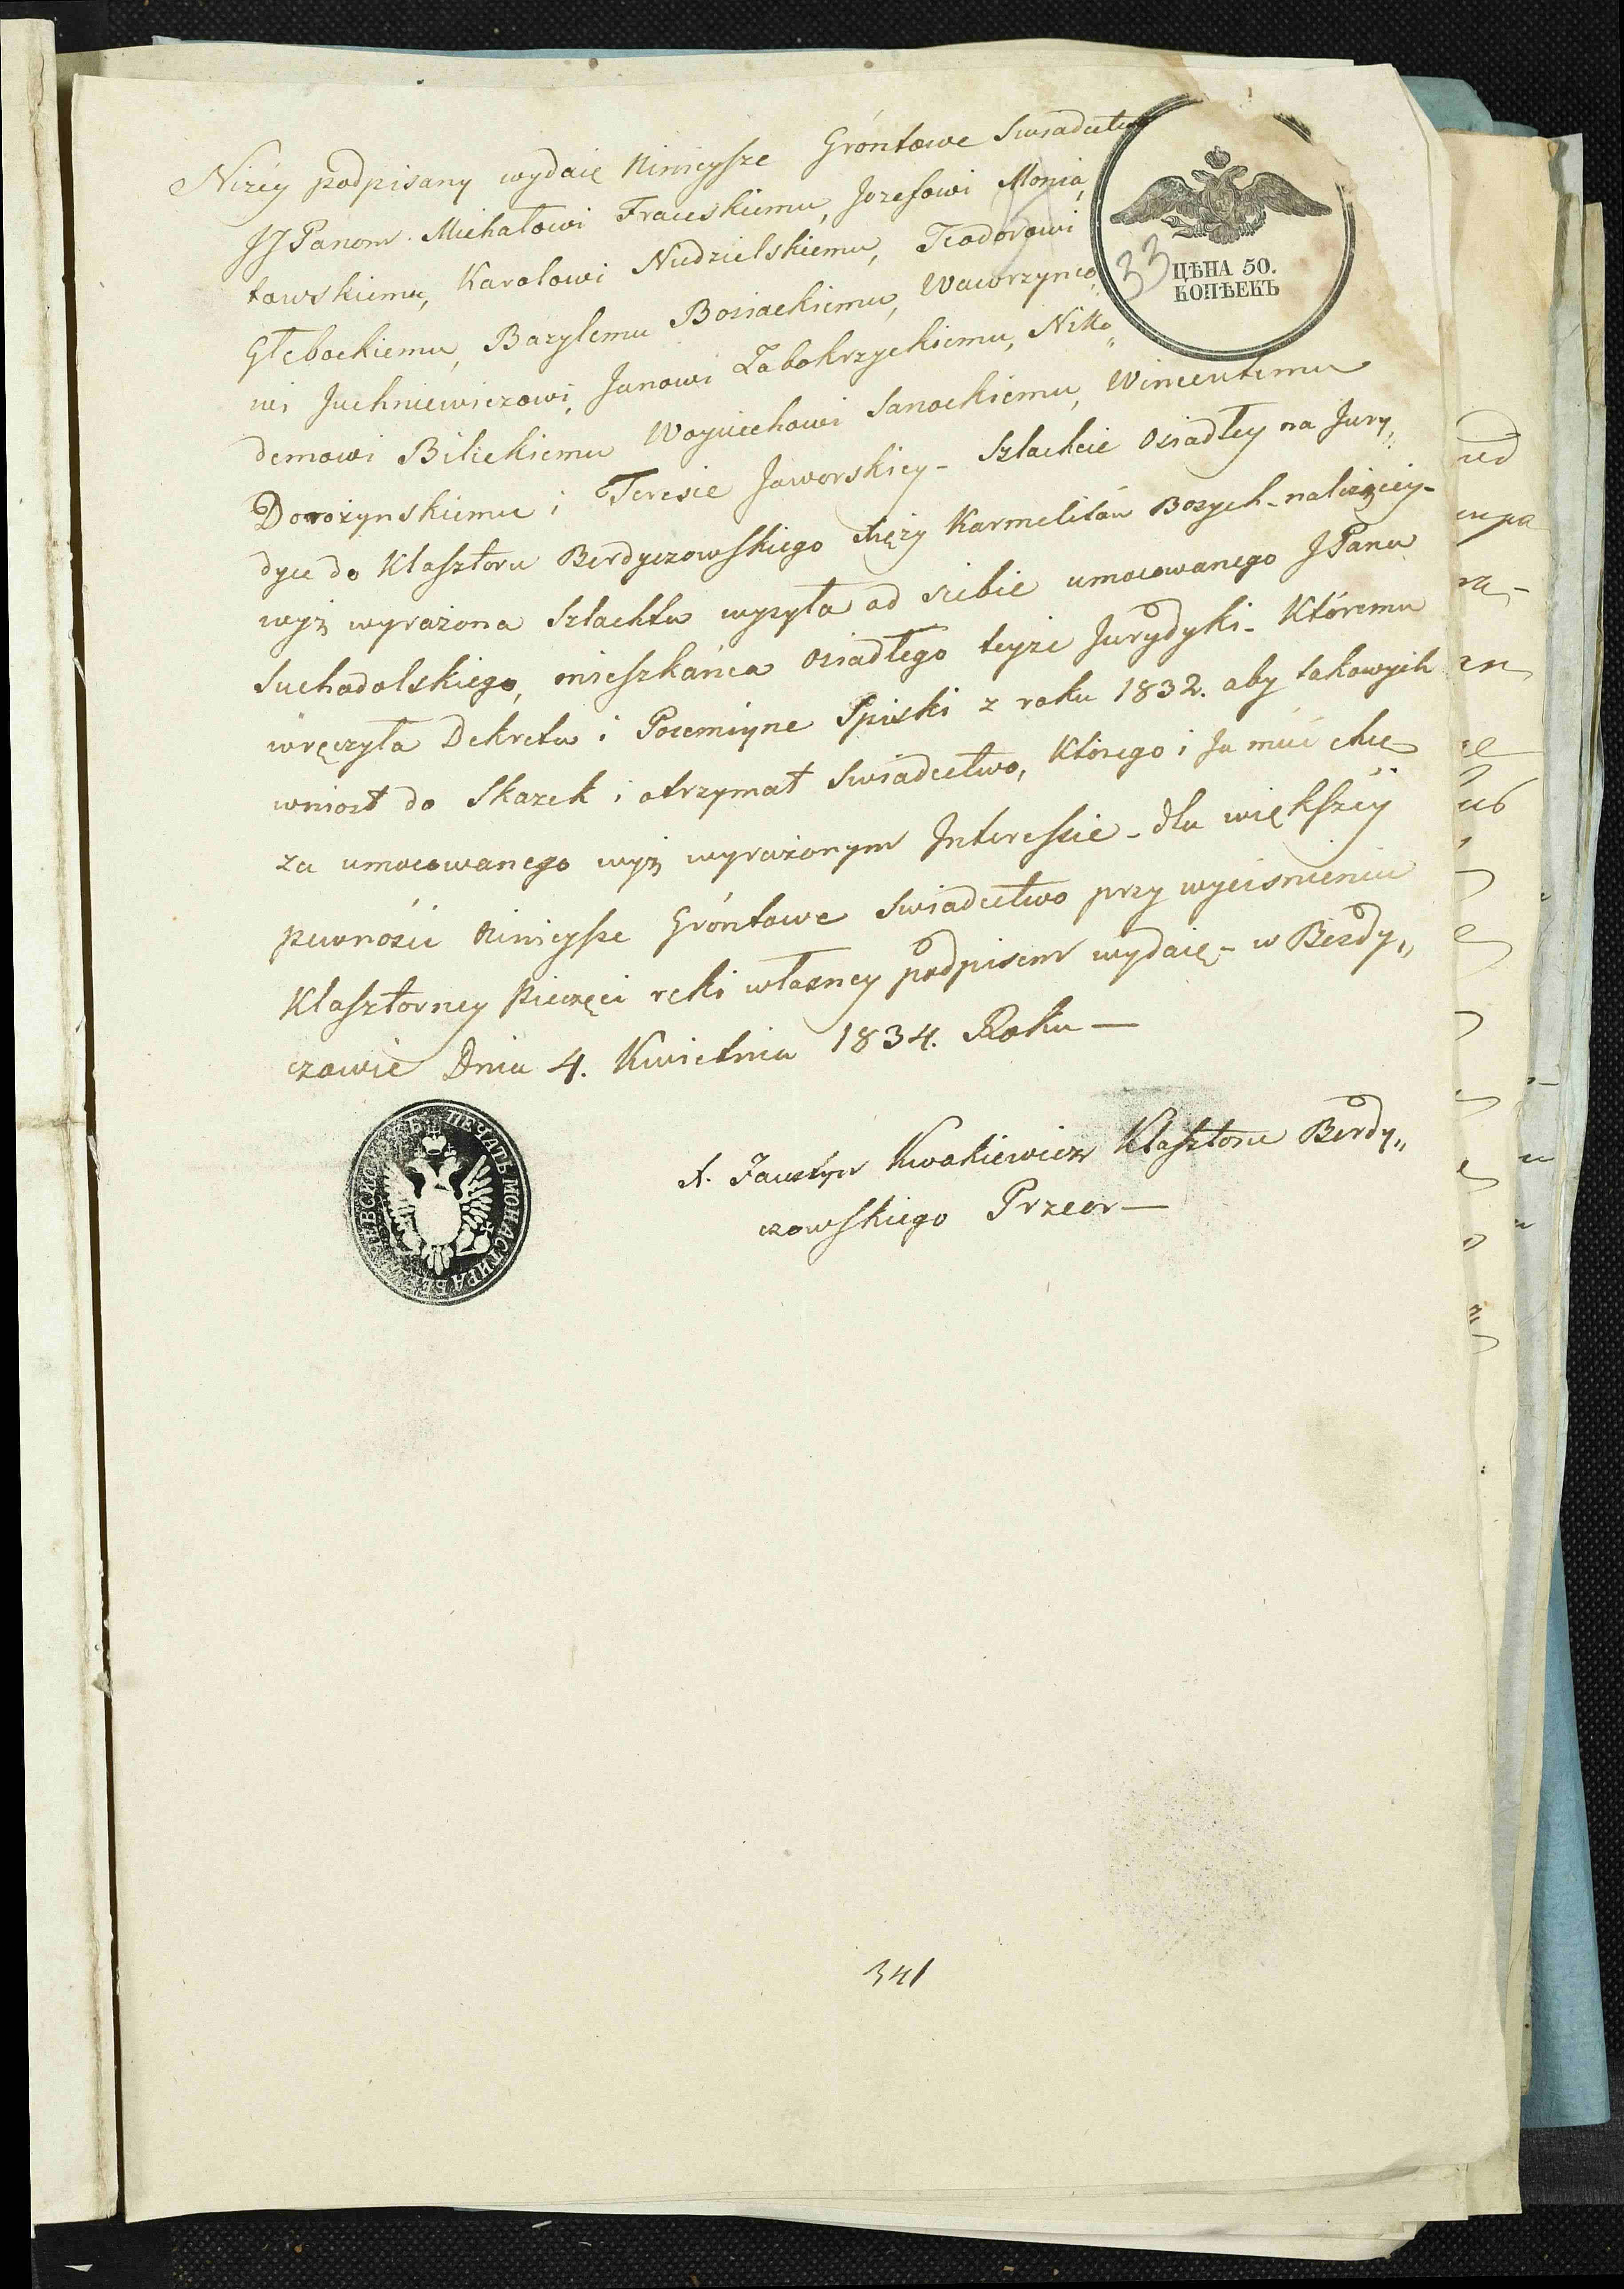 Niżey podpisany wydaię Ninieysze Gróntowe Swiadectwo
JJPanom Michałowi Fraceskiemu, Jozefowi Monia„
towskiemu, Karolowi Nudzielskiemu, Teodorowi
Głebockiemu, Bazylemu Bosiackiemu, Wawrzynco„
wi Juchniewiczowi, Janowi Zabokrzyckiemu, Niko„
demowi Bilickiemu Woyciechowi Sanockiemu, Wincentemu
Dorożynskiemu i Teresie Jaworskiey - Szlachcie Osiadłey na Jury„
dyce do Klasztoru Berdyczowskiego Xięży Karmelitów Bosych - należącey -
wyż wyrażona Szlachta wysyła od siebie umocowanego JPana
Suchodolskiego, mieszkańca Osiadłego teyże Jurydyki - Któremu
wręczyła Dekreta i Poiemiyne Spiski z roku 1832. aby takowych
wniosł do Skazek i otrzymał Swiadectwo, Którego i Ja mieć chcę
za umocowanego wyż wyrażonym Interessie - dla większey
pewności Ninieysze Gróntowe Swiadectwo przy wycisnieniu
Klasztorney Pieczęci ręki własney podpisem wydaię - w Berdy„
czowie Dnia 4. Kwietnia 1834. Roku —
X. Faustyn Kwakiewicz Klasztoru Berdy„
czowskiego Przeor —
ЦѢНА 50.
КОПѢЕКЪ
33
ПЕЧАТЬ МОНАСТИРА
341